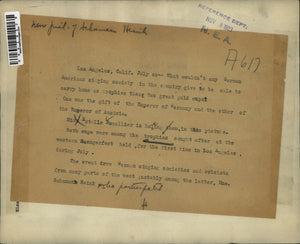 new pict. of Schumann Heink
REFERENCE DEPT.
NOV 8 1923
N. E. A.
A617
Los Angeles, Calif. July 20-- What wouldn't any German
American singing society in the country give to be able to
carry home as trophies these two great gold cups?
One was the gift of the Emperor of Germany and the other of
the Emperor of Austria.
Miss Estelle Heuallier is holding them, in this picture.
Both cups were among the trophies sought after at the
western Saengerfest held for the first time in Los Angeles,
during July.
The event drew German singing societies and artists
from many parts of the west notably among the latter, Mme.
Schumann Heink who participated